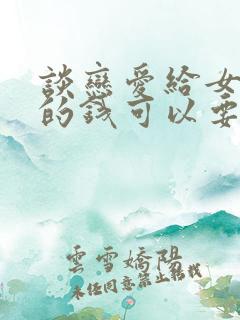 談戀愛給女
的錢可以要
雲雪嬌陽
未经同意禁止转载